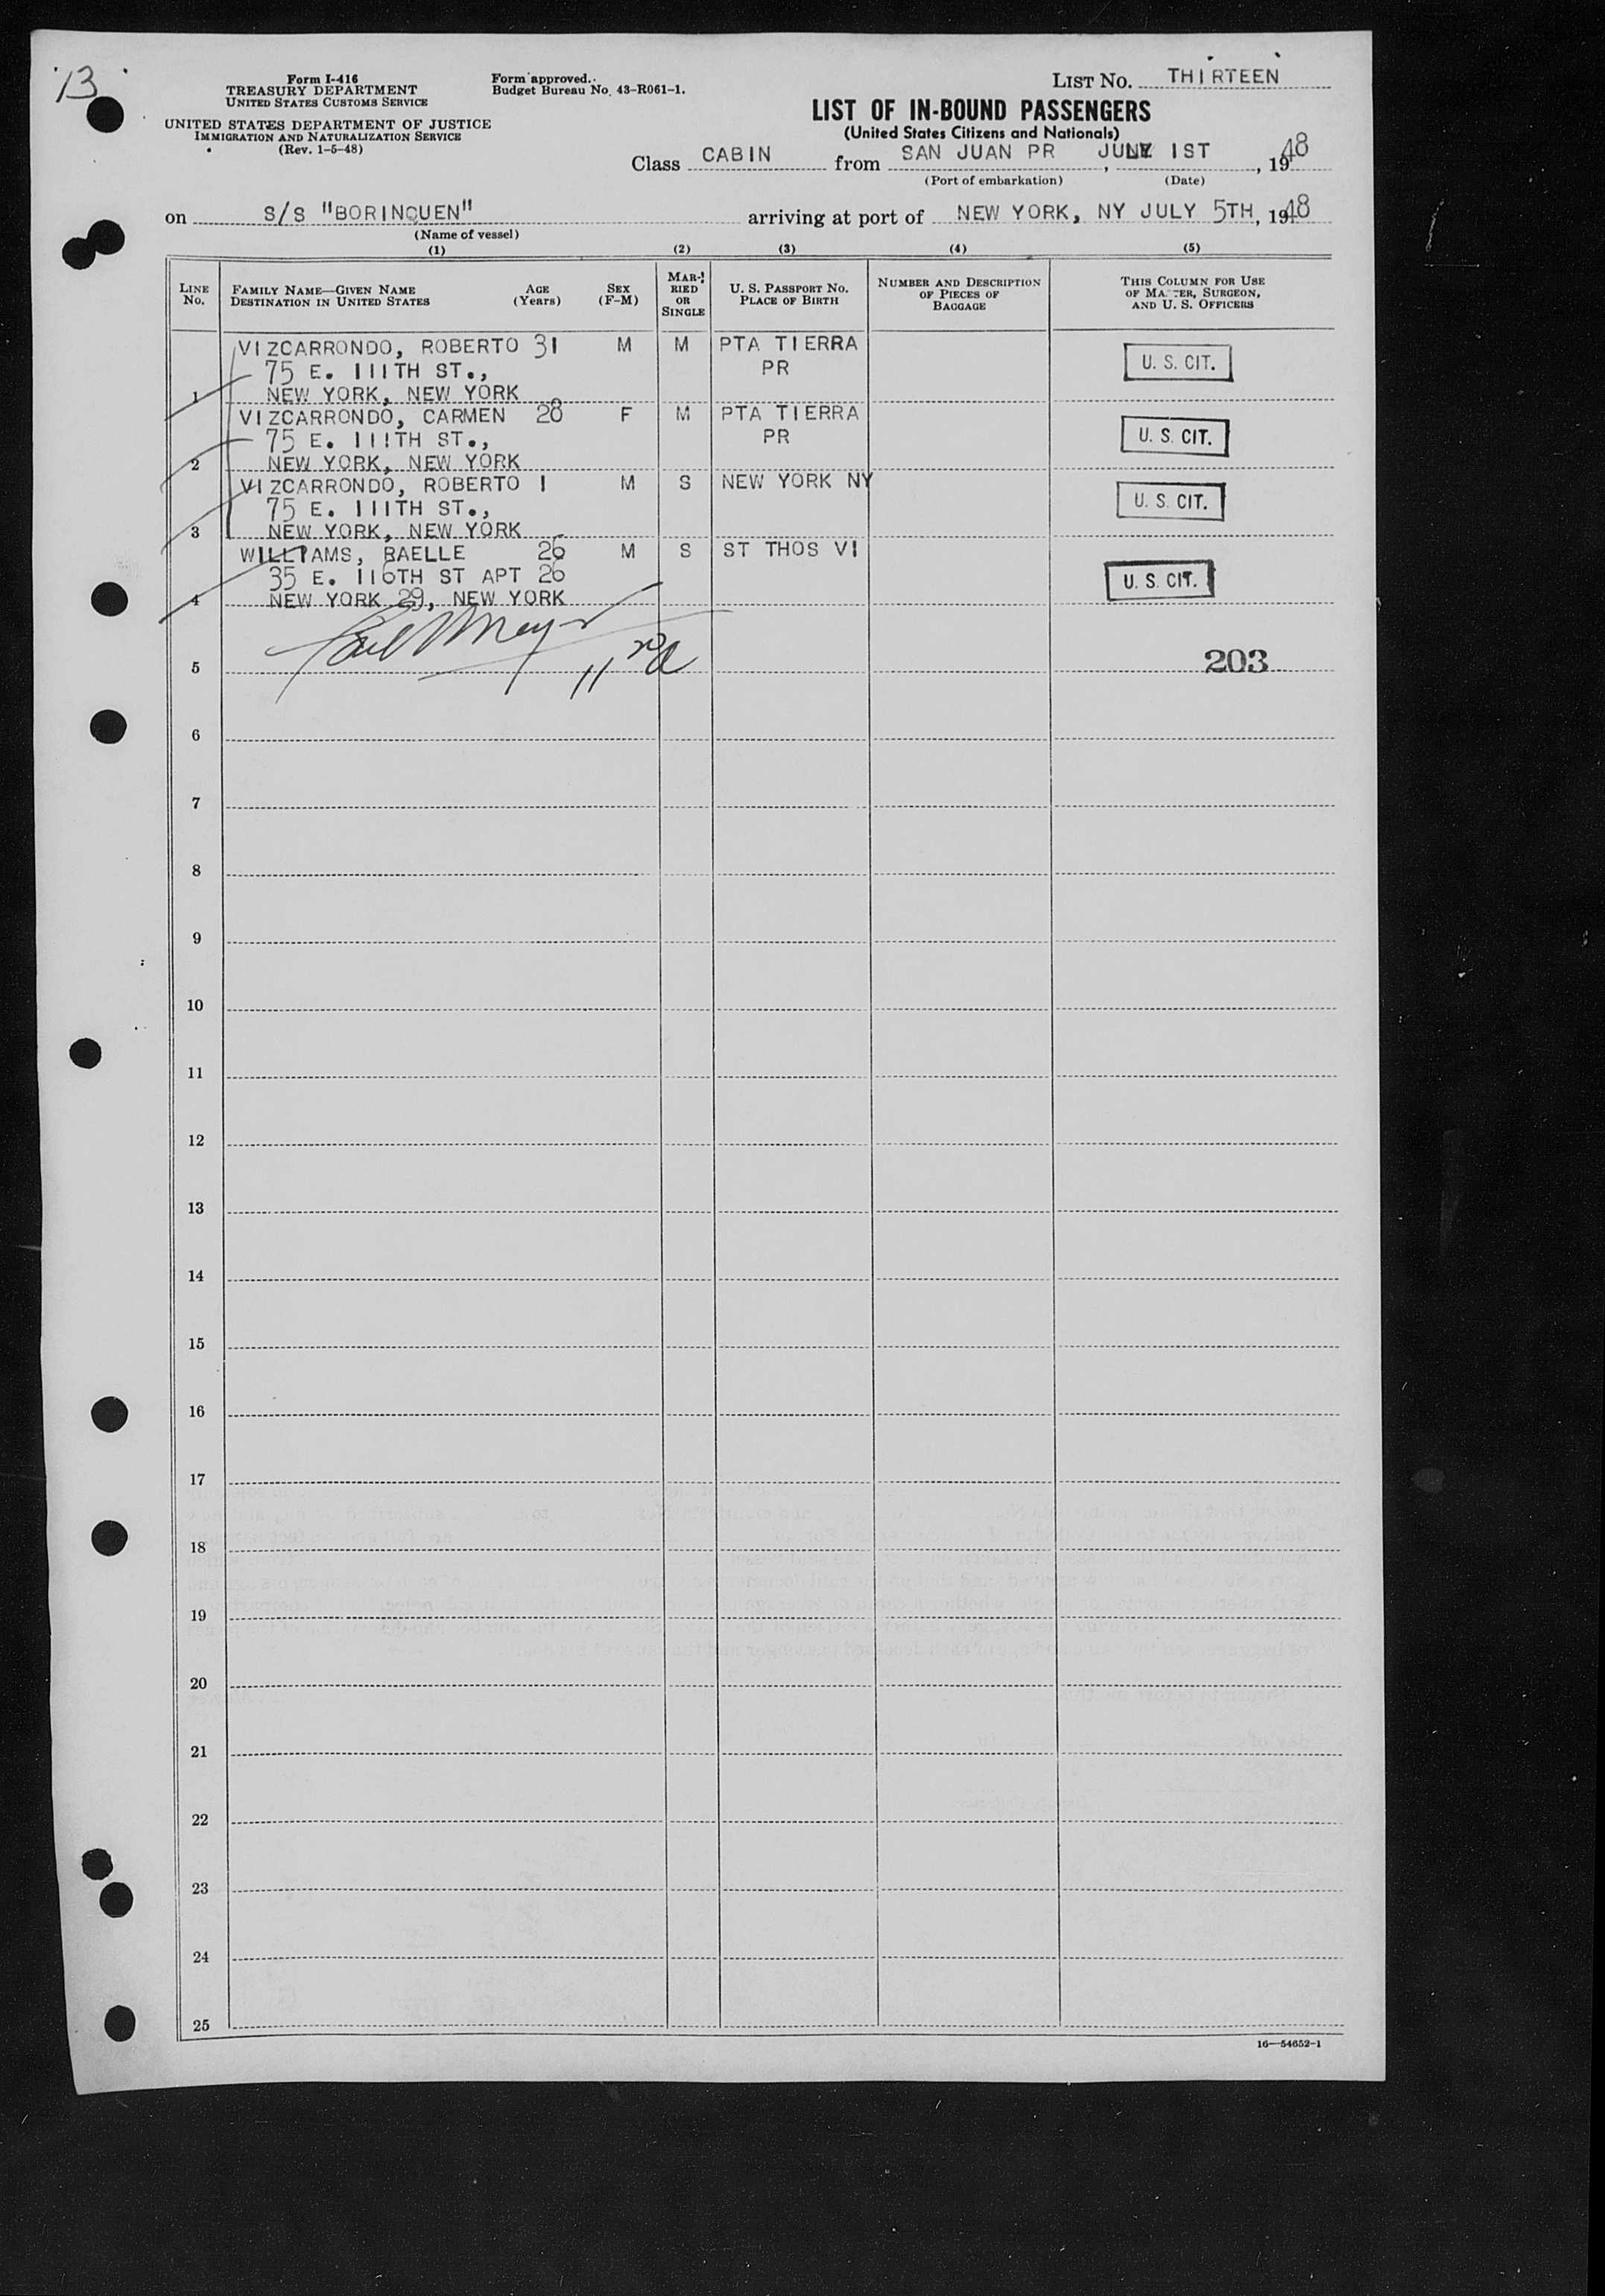 13
Form I-416
TREASURY DEPARTMENT
UNITED STATES CUSTOMS SERVICE
UNITED STATES DEPARTMENT OF JUSTICE
IMMIGRATION AND NATURALIZATION SERVICE
(Rev. 1-5-48)
Form approved.
Budget Bureau No. 43-R061-1.
LIST NO. THIRTEEN
LIST OF IN-BOUND PASSENGERS
(United States Citizens and Nationals)
Class CABIN from SAN JUAN PR, JULY 1ST, 1948
(Port of embarkation) (Date)
on S/S "BORINQUEN" arriving at port of NEW YORK, NY JULY 5TH, 1948
(Name of vessel)
(1) (2) (3) (4) (5)
LINE NO.
FAMILY NAME—GIVEN NAME
DESTINATION IN UNITED STATES
AGE (Years)
SEX (F-M)
MARRIED OR SINGLE
U. S. PASSPORT NO.
PLACE OF BIRTH
NUMBER AND DESCRIPTION OF PIECES OF BAGGAGE
THIS COLUMN FOR USE OF MASTER, SURGEON, AND U. S. OFFICERS
VIZCARRONDO, ROBERTO 31 M M PTA TIERRA
75 E. 111TH ST., PR U. S. CIT.
1 NEW YORK, NEW YORK
VIZCARRONDO, CARMEN 28 F M PTA TIERRA
75 E. 111TH ST., PR U. S. CIT.
2 NEW YORK, NEW YORK
VIZCARRONDO, ROBERTO 1 M S NEW YORK NY
75 E. 111TH ST., U. S. CIT.
3 NEW YORK, NEW YORK
WILLIAMS, RAELLE 26 M S ST THOS VI
35 E. 116TH ST APT 26 U. S. CIT.
4 NEW YORK 29, NEW YORK
5 203
6
7
8
9
10
11
12
13
14
15
16
17
18
19
20
21
22
23
24
25
16—54652-1